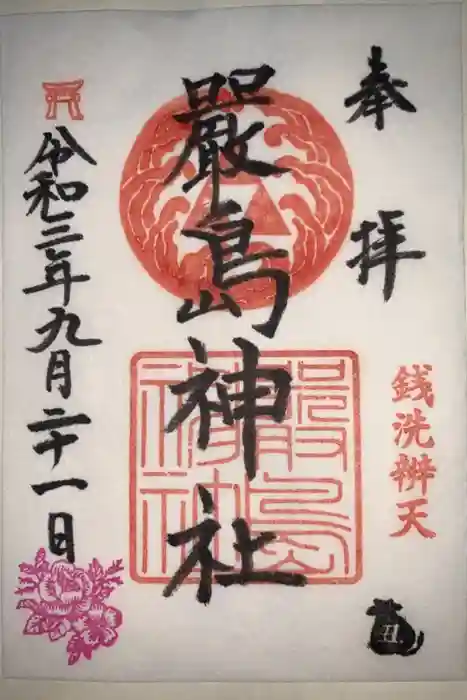 奉拝
銭洗辨天
丑
嚴島神社
嚴島神社
令和三年九月二十一日